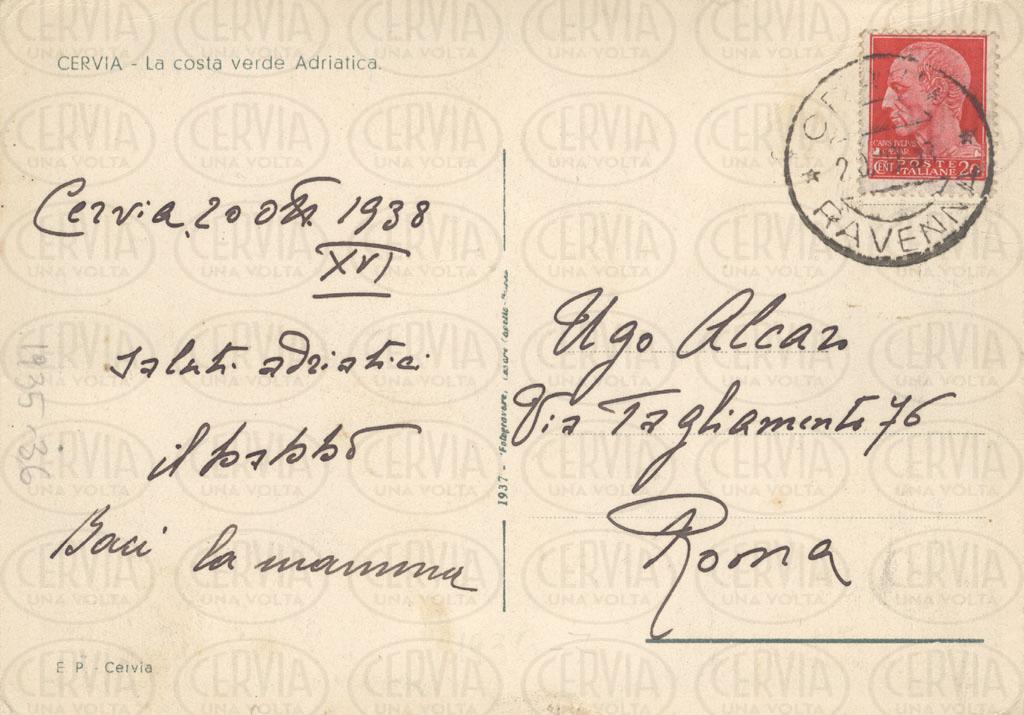 CERVIA - La costa verde Adriatica.
Cervia, 20 Ott. 1938
XVI
saluti adriatici
il babbo
Baci la mamma
E. P. - Cervia
1935-36
1937 - "Fotogravure" Cesare
CENT POSTE 20
ITALIANE
RAVENNA
Ugo Alcaro
Via Tagliamento 76
Roma
CERVIA
UNA VOLTA